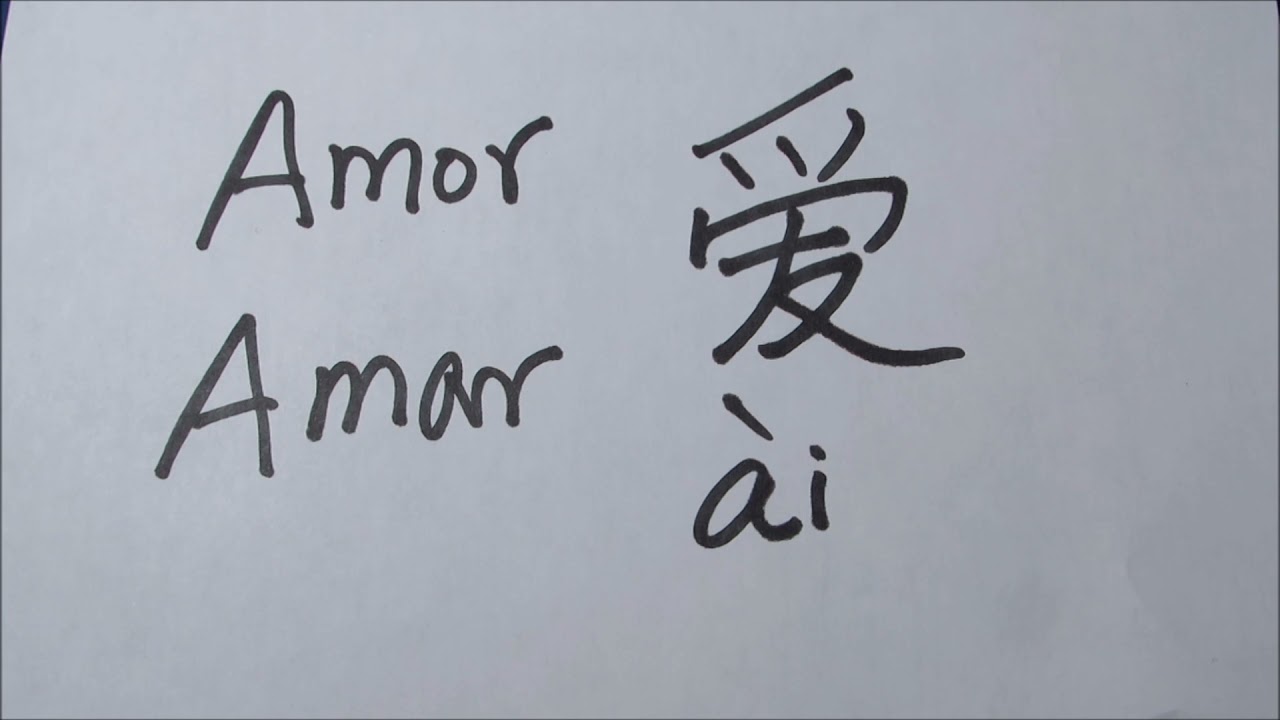 Amor 爱
Amar ài